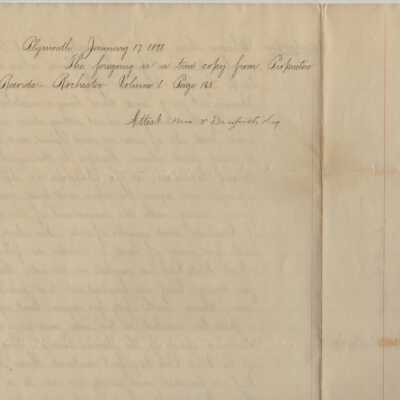 Plymouth January 17 1898
The foregoing is a true copy from Proprietors
Records Rochester Volume 1 Page
Attest